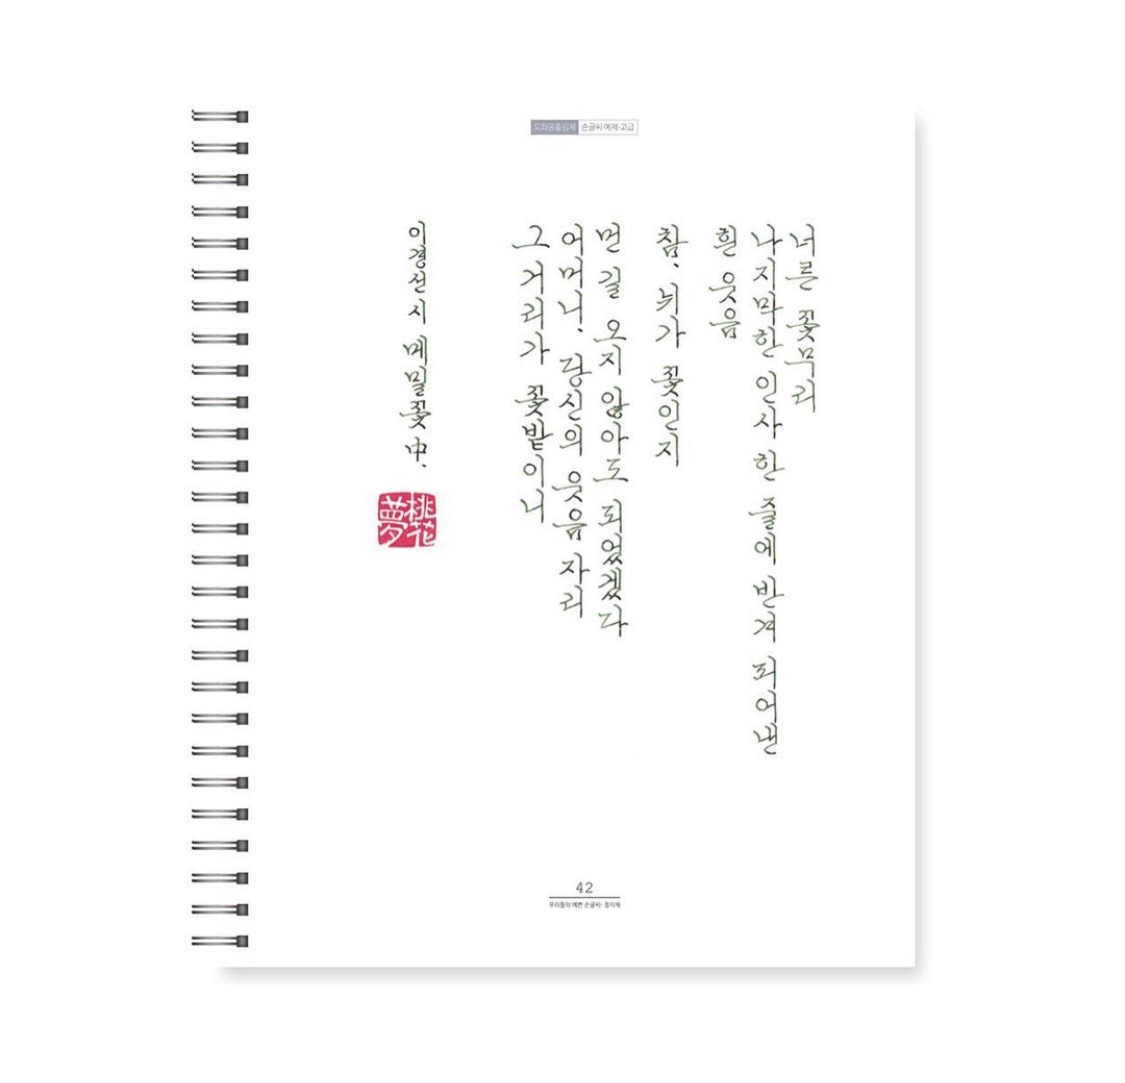 도화몽흘림체 손글씨 예제·고급
너른 꽃무리
나지막한 인사 한 줄에 반겨 피어낸
흰 웃음
참, 뉘가 꽃인지
먼 길 오지 않아도 되었겠다
어머니, 당신의 웃음 자리
그 거리가 꽃밭이니
이경선 시 메밀꽃 中.
桃花夢
42
우리들의 예쁜 손글씨·